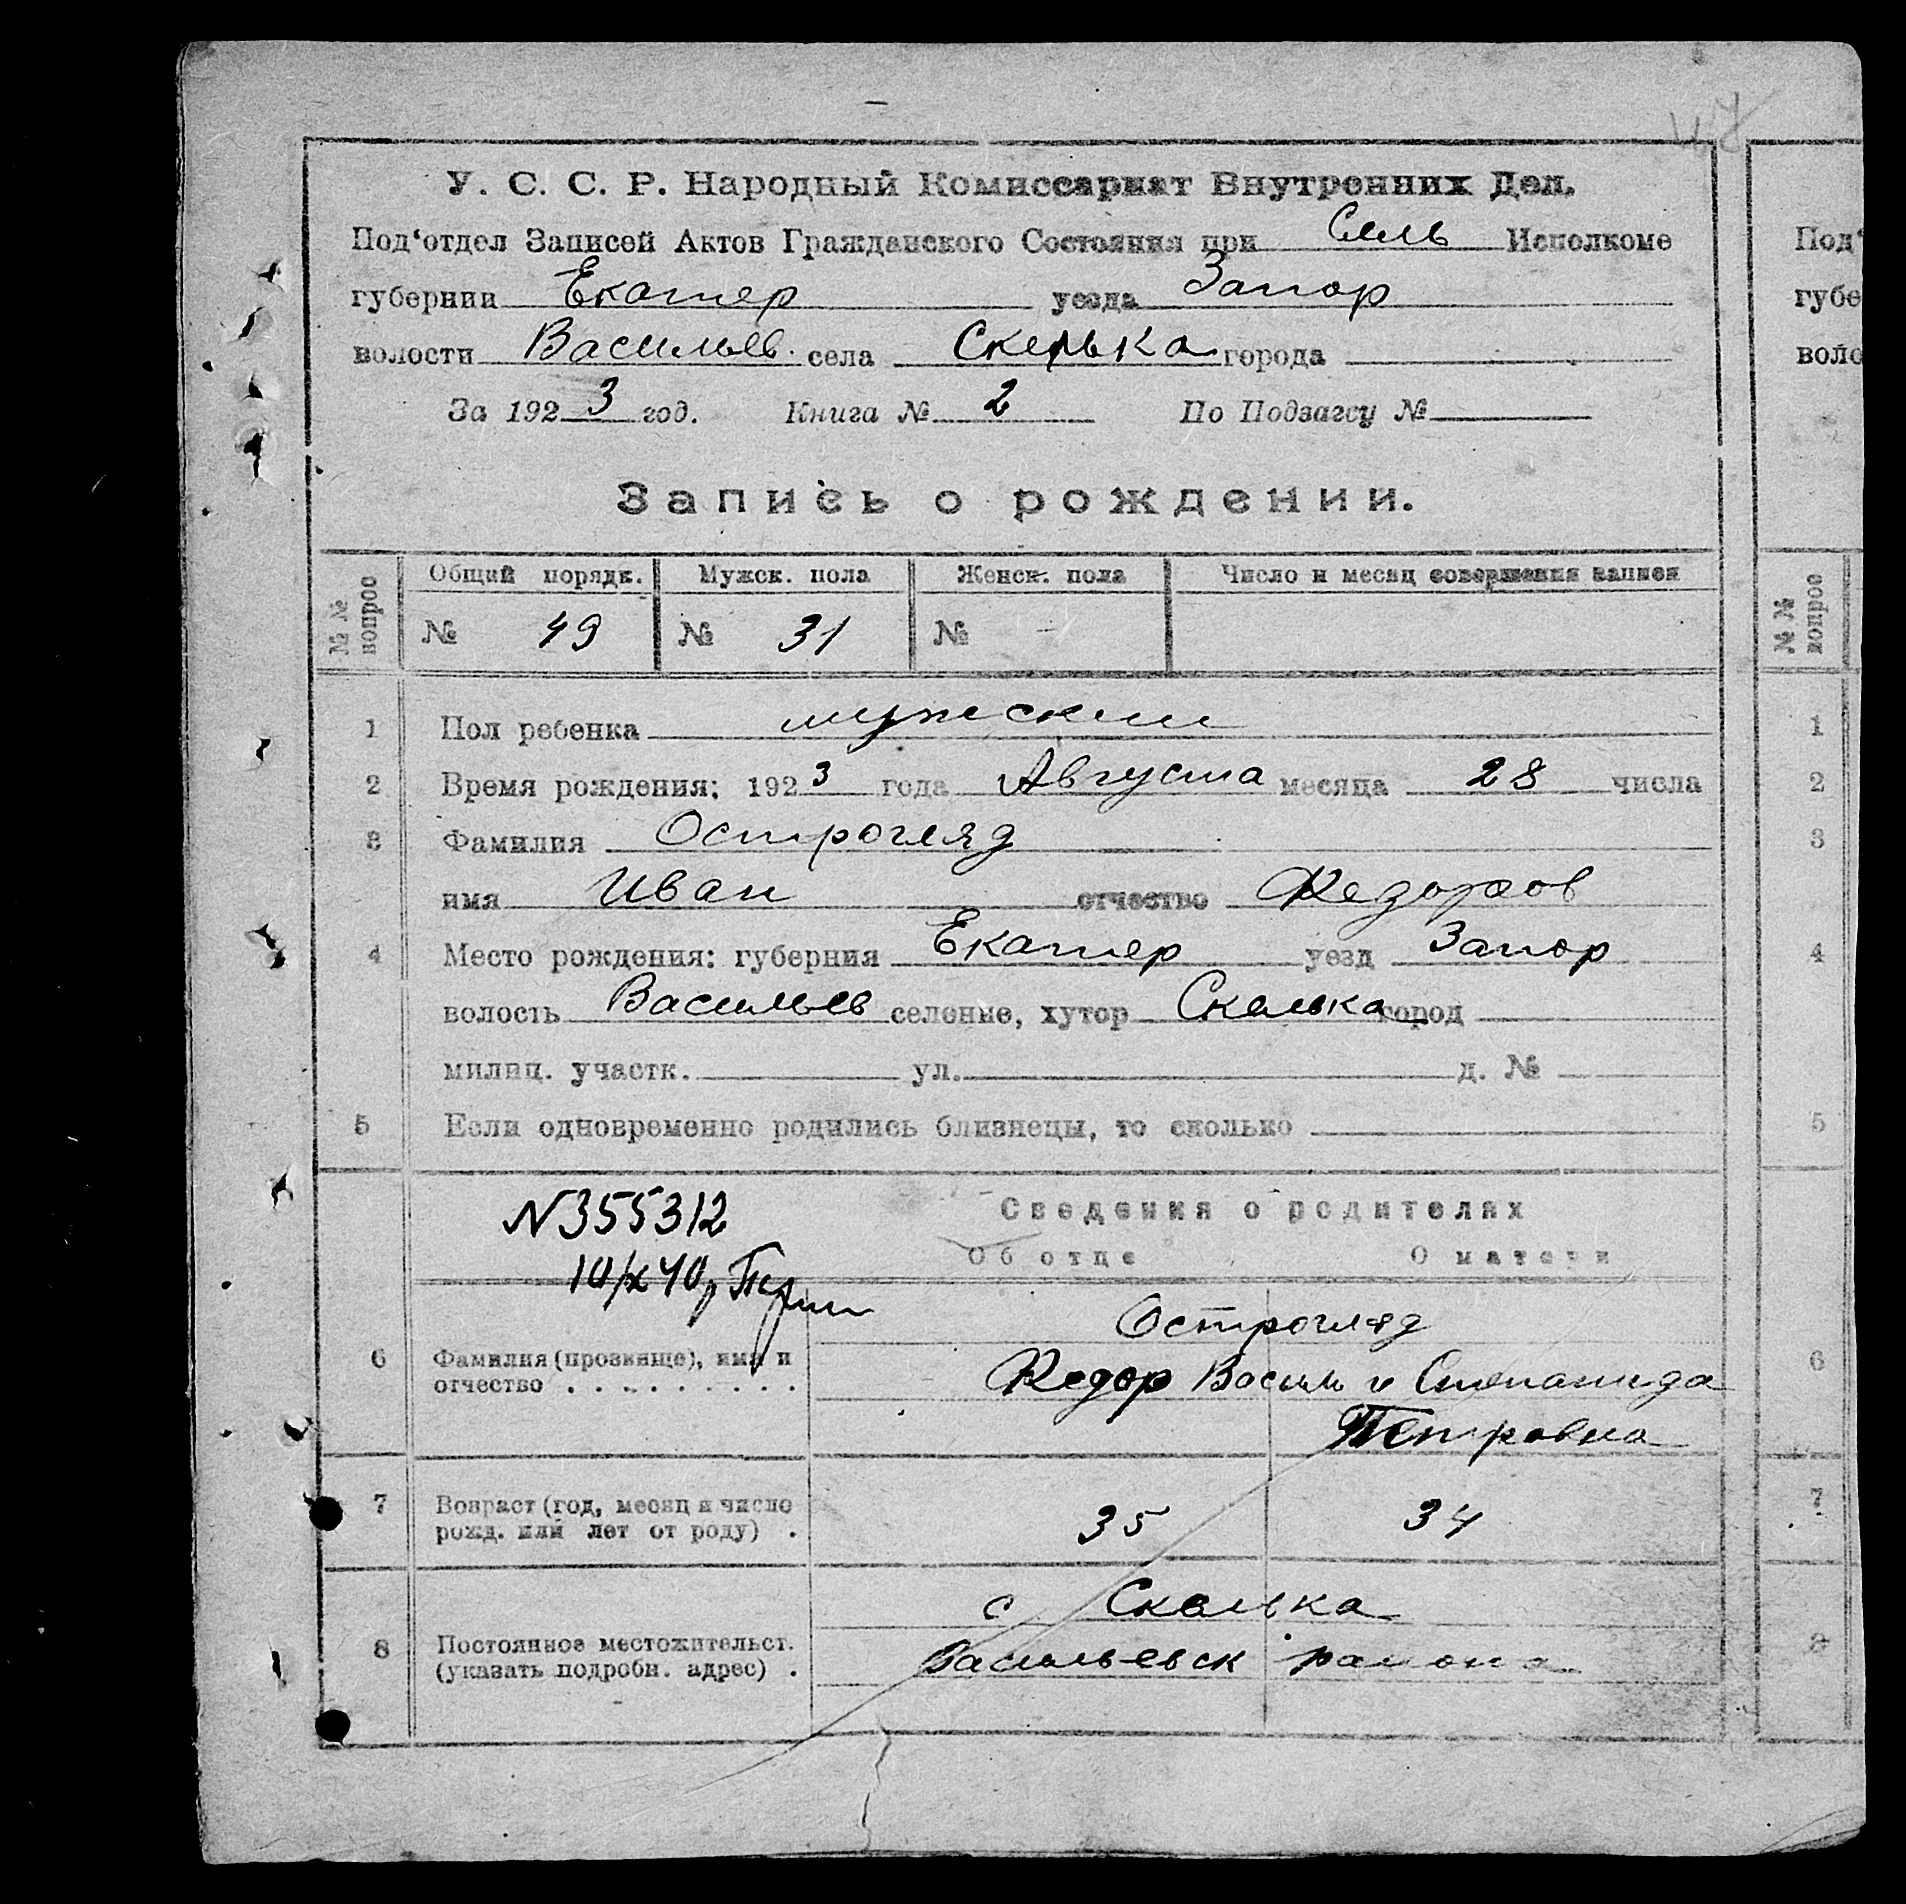 У. С. С. Р. Народный Комиссариат Внутренних Дел.
Под‘отдел Записей Актов Гражданского Состояния при Сель Исполкоме
губернии Екатер уезда Запор
волости Васильев. села Скелька города
За 1923 год. Книга № 2 По Подзагсу №
Запись о рождении.
№ № вопрос Общий порядк. Мужск. пола Женск. пола Число и месяц совершения записи
№ 49 № 31 №
1 Пол ребенка мужский
2 Время рождения: 1923 года Августа месяца 28 числа
3 Фамилия Острогляд
имя Иван отчество Федоров
4 Место рождения: губерния Екатер уезд Запор
волость Васильев селение, хутор Скелька город
милиц. участк. ул. д. №
5 Если одновременно родились близнецы, то сколько
N355312
Сведения о родителях
10/X 40
Об отце О матери
Острогляд
6 Фамилия (прозвище), имя и
отчество . . . . . . . . . .
Федор Василь и Степанида
Петровна
7 Возраст (год, месяц и число
рожд. или лет от роду) .
35 34
с Скелька
8 Постоянное местожительст.
(указать подробн. адрес) .
Васильевск района
Под‘
губе
воло
№ № вопрос
1
2
3
4
5
6
7
8